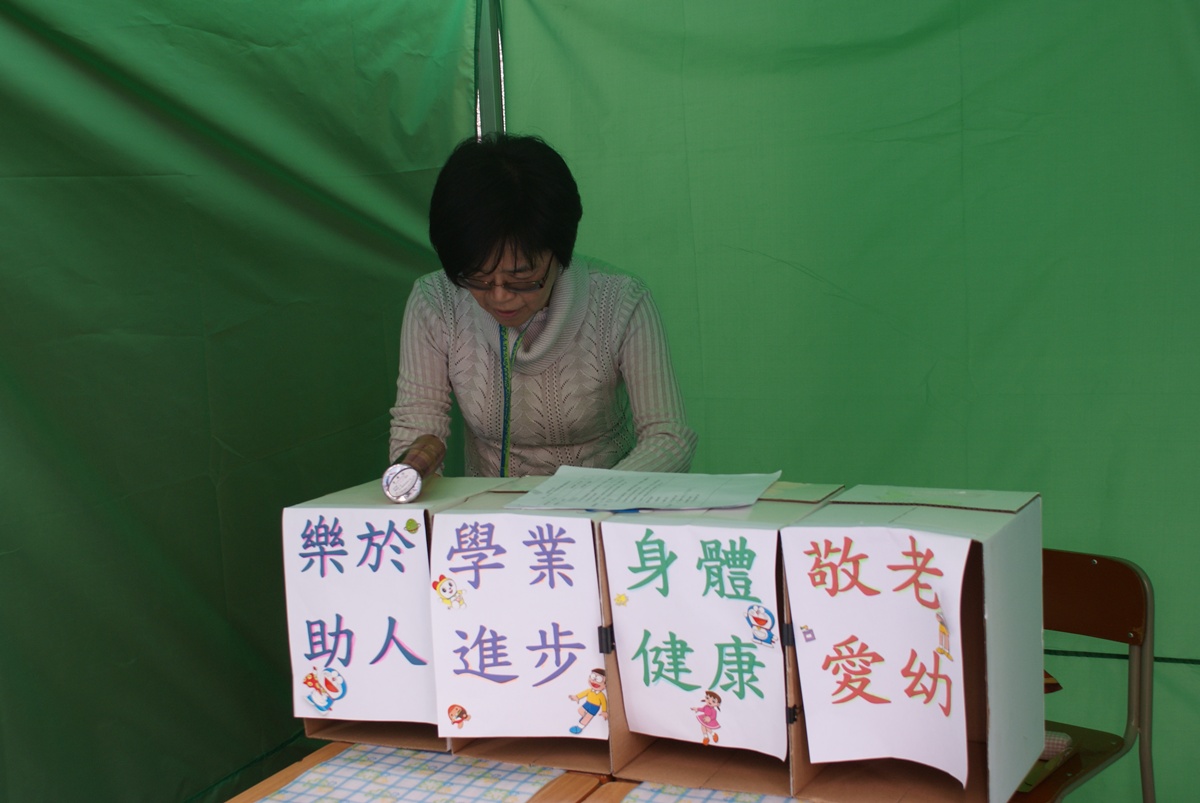 樂於
助人
學業
進步
身體
健康
敬老
愛幼